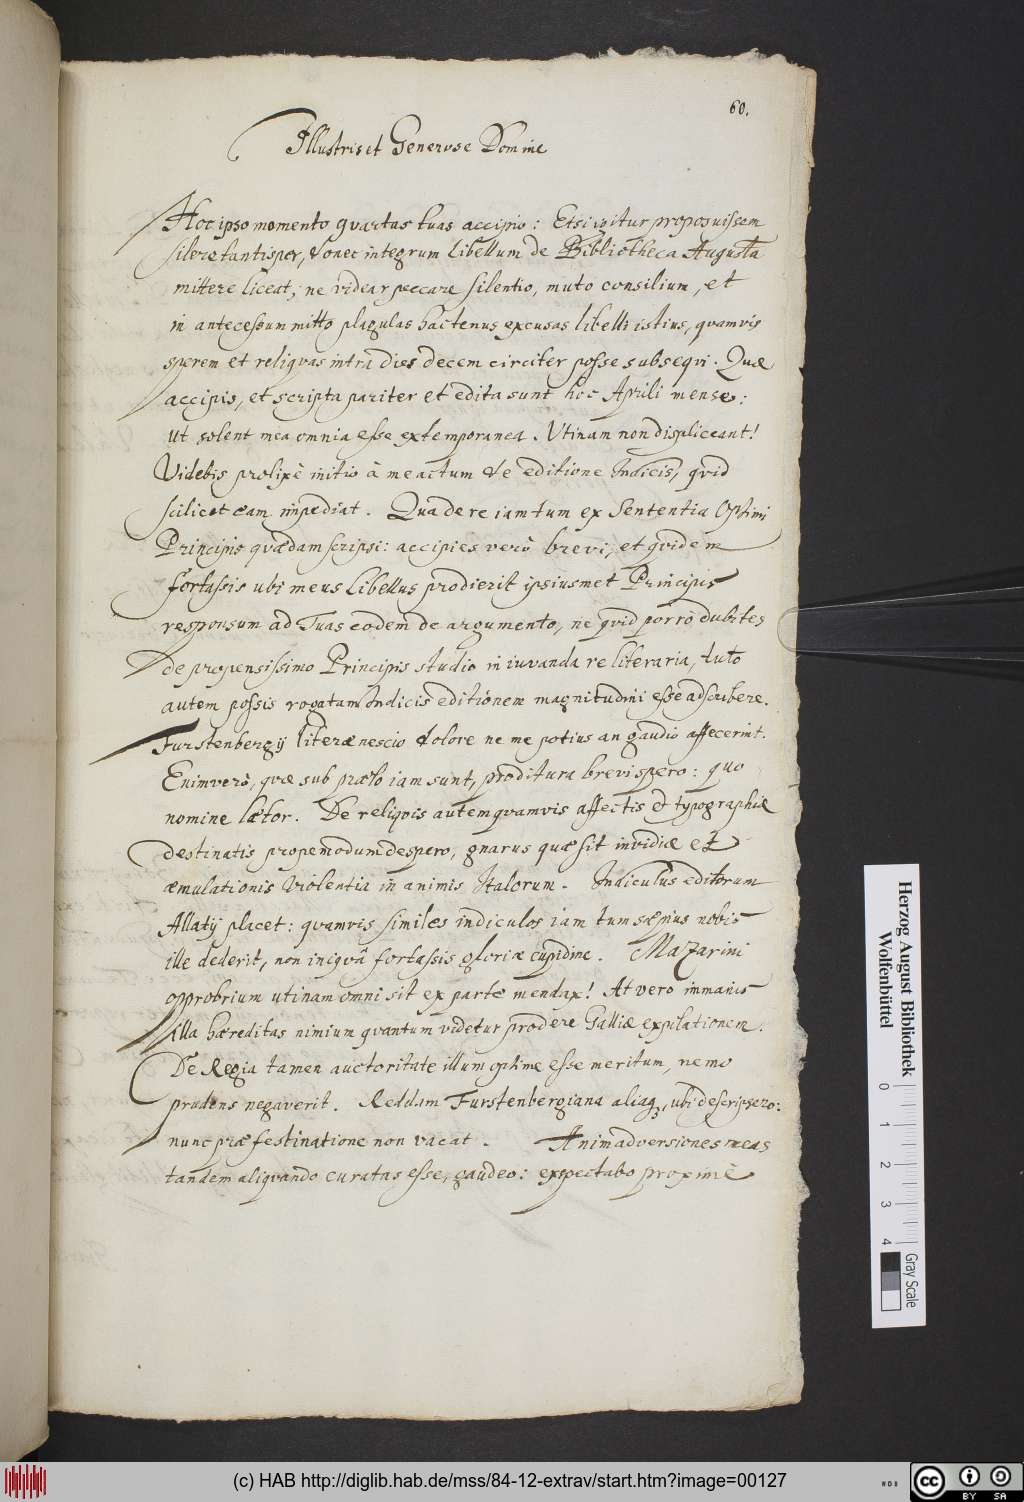 60.
Illustris et Generose Domine
Hoc ipso momento quartas tuas accipio: Etsi igitur proposuissem
silere tantisper, donec integrum libellum de Bibliotheca Augusta
mittere liceat; ne videar peccare silentio, muto consilium, et
in antecessum mitto plagulas hactenus excusas libelli istius, quamvis
sperem et reliquas intra dies decem circiter posse subsequi. Quae
accipis, et scripta pariter et edita sunt hoc Aprili mense:
ut solent mea omnia esse extemporanea. Utinam non displiceant!
Videbis prolixè initio à me actum de editione Indicis, quid
scilicet eam impediat. Qua de re iam tum ex Sententia Optimi
Principis quædam scripsi: accipies verò brevi, et quidem
fortassis ubi meus libellus prodierit ipsiusmet Principis
responsum ad Tuas eodem de argumento, ne quid porrò dubites
de propensissimo Principis studio in iuvanda re literaria, tuto
autem possis rogatam Indicis editionem magnitudini esse adscribere.
Furstenbergij literæ nescio dolore ne me potius an gaudio affecerint.
Enimverò, quæ sub prælo iam sunt, proditura brevi spero: quo
nomine lætor. De reliquis autem quamvis affectis & typographiæ
destinatis propemodum despero, gnarus quæ sit invidiæ et
æmulationis violentia in animis Italorum. Indiculus editorum
Allatij placet: quamvis similes indiculos iam tum sæpius nobis
ille dederit, non iniquâ fortassis gloriæ cupidine. Mazarini
opprobrium utinam omni sit ex parte mendax! At vero immanis
illa hæreditas nimium quantum videtur prodere Galliæ expilationem.
De Regia tamen auctoritate illum optime esse meritum, nemo
prudens negaverit. Reddam Furstenbergiana aliaq;, ubi descripsero:
nunc præ festinatione non vacat. Animadversiones meas
tandem aliquando curatas esse, gaudeo: expectabo proximè
Herzog August Bibliothek
Wolfenbüttel
0 1 2 3 4
Gray Scale
(c) HAB http://diglib.hab.de/mss/84-12-extrav/start.htm?image=00127
cc BY SA